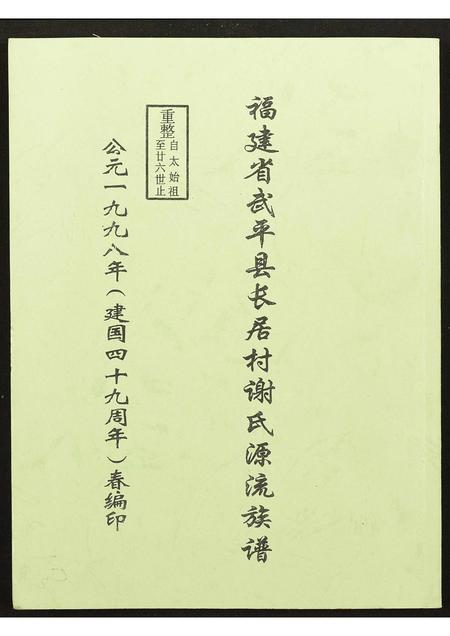 福建省武平县长居村谢氏源流族谱
重整
自太始祖
至廿六世止
公元一九九八年(建国四十九周年)春编印